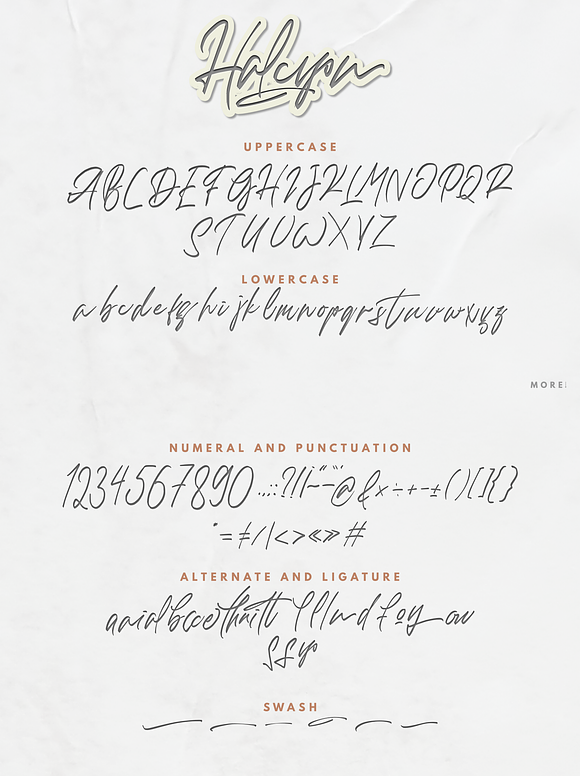 Halcyon
UPPERCASE
ABCDEFGHIJKLMNOPQR
STUVWXYZ
LOWERCASE
abcdefghijklmnopqrstuvwxyz
MORE
NUMERAL AND PUNCTUATION
1234567890
ALTERNATE AND LIGATURE
SWASH